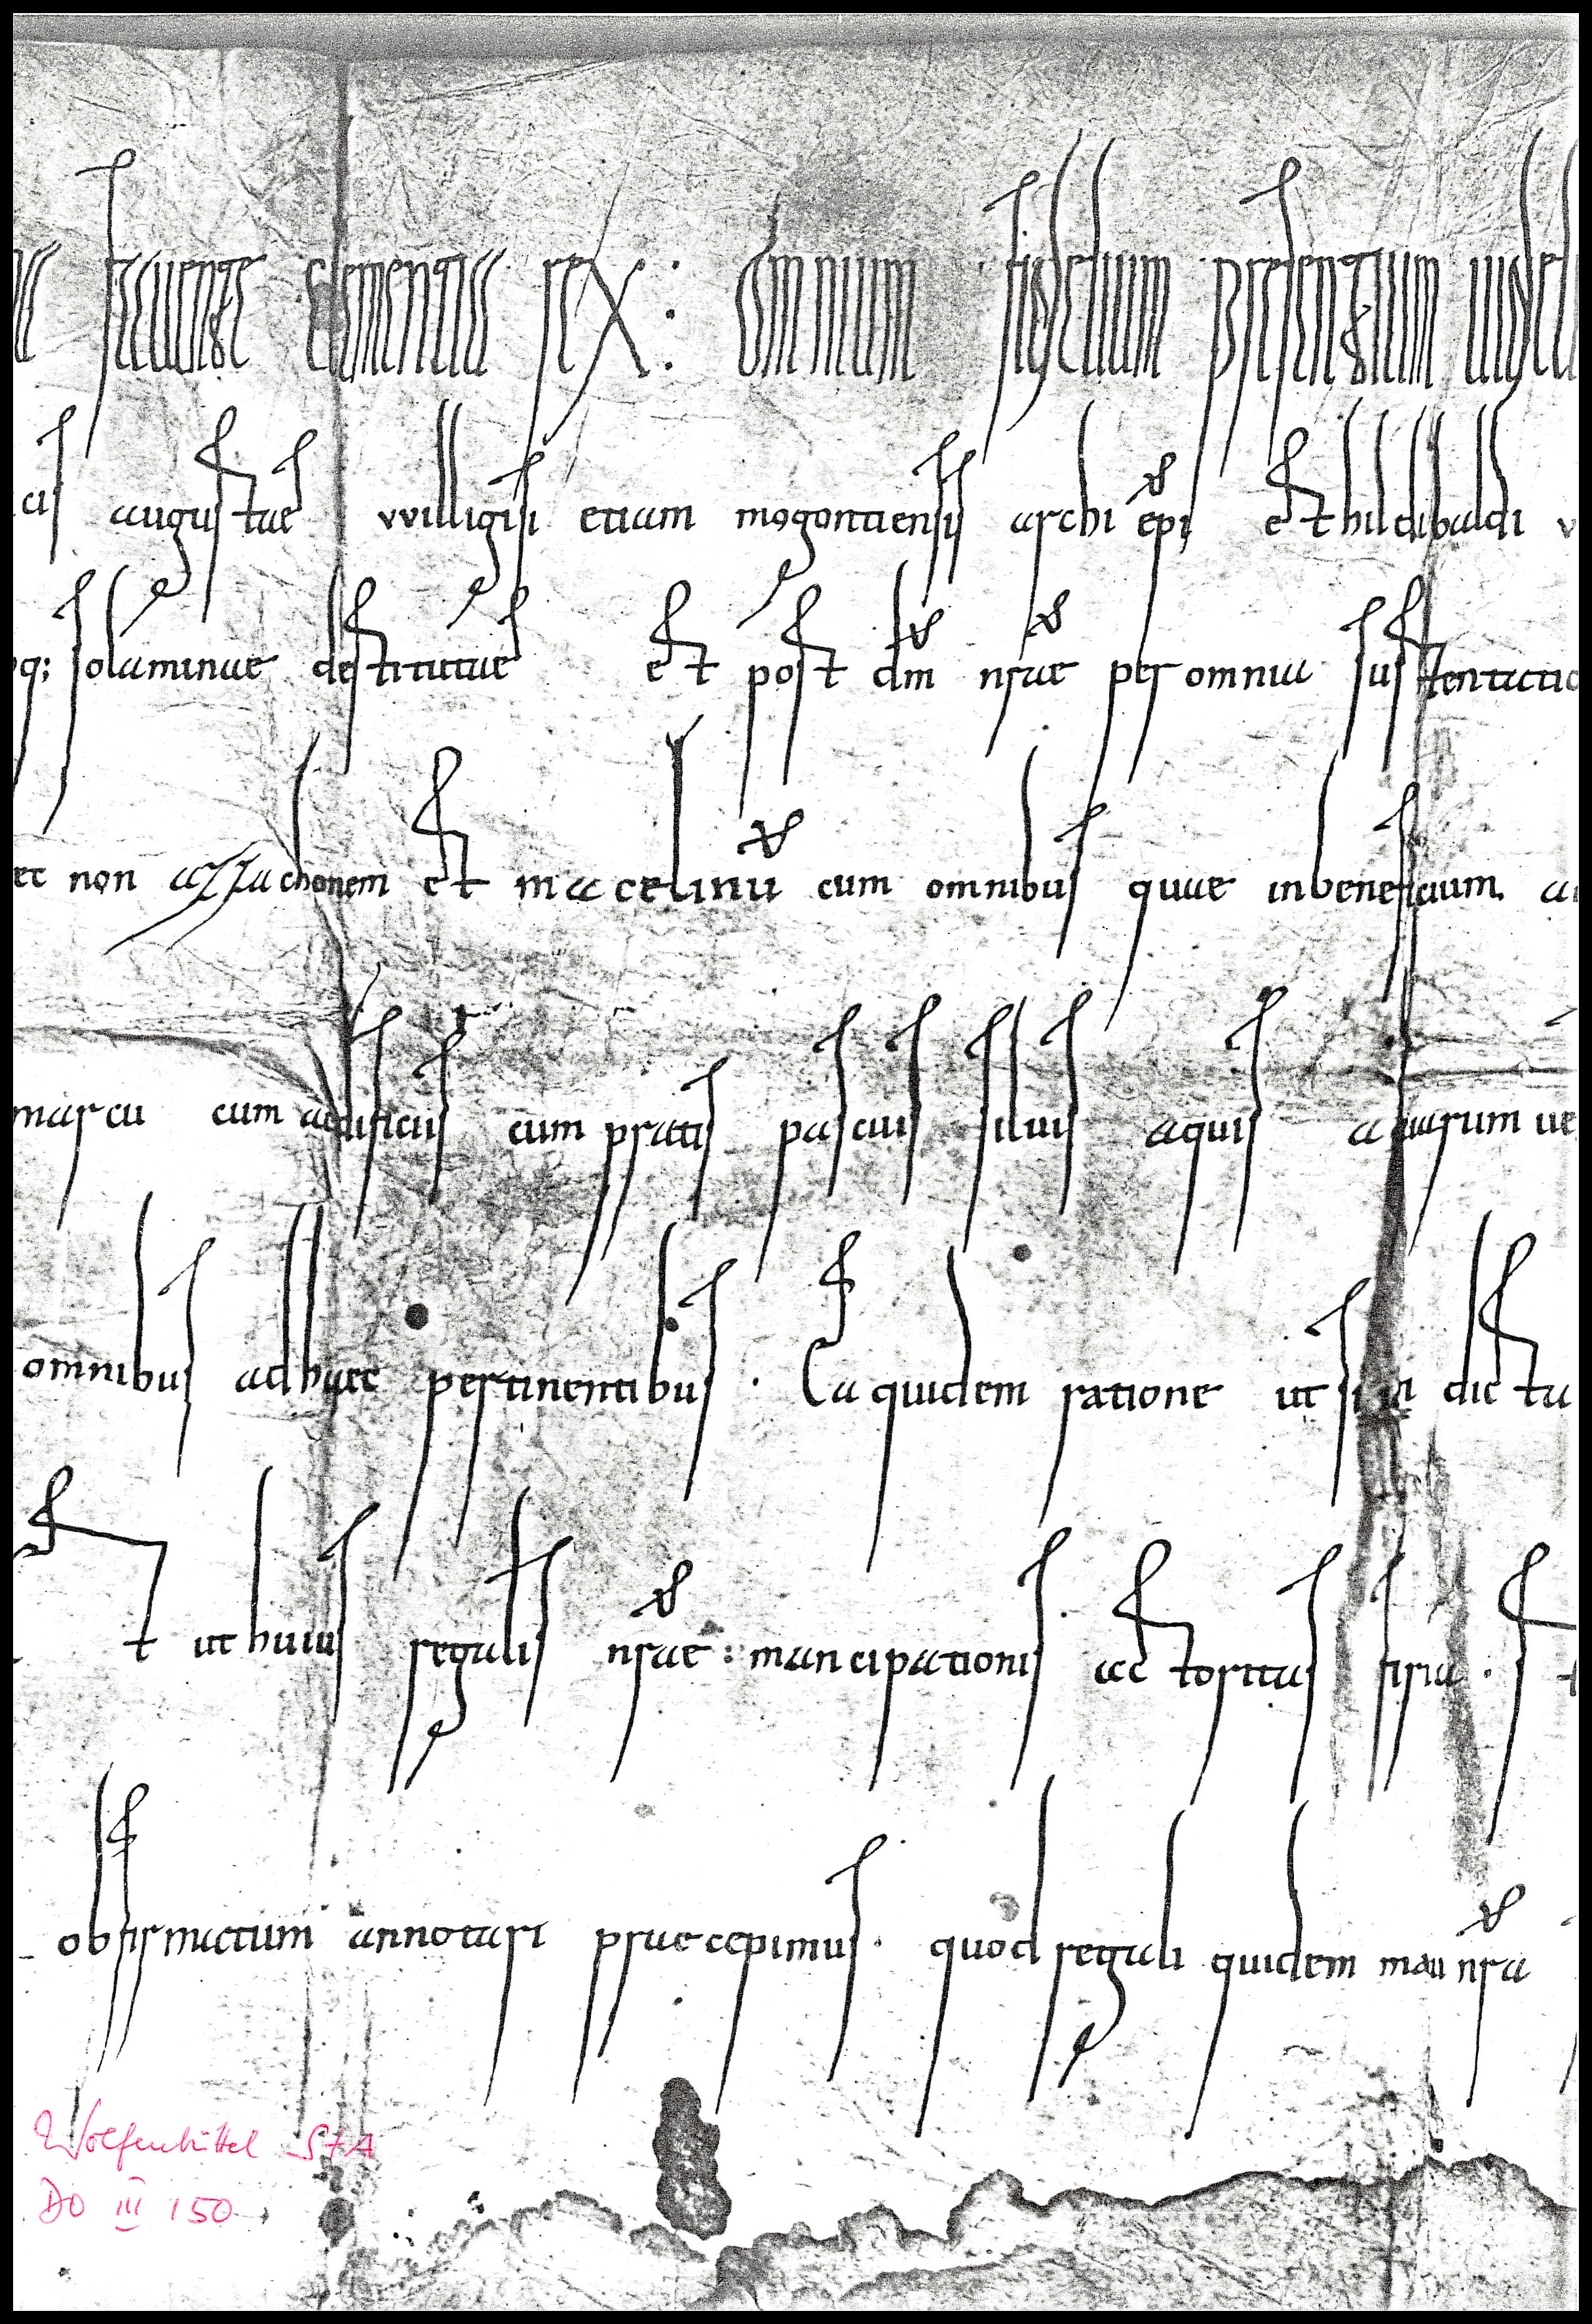 fauente clementia rex : Omnium fidelium presentium uidel
cis augustae vvilligisi etiam mogontiensis archi epi et hildibaldi
q; solaminae destitutae et post dm nrae per omnia sustentatio
ec non azzachonem et macelinu cum omnibus quae inbeneficium
marca cum aedificiis cum pratis pascuis siluis aquis aquarum ue
omnibus adhaec pertinentibus . Ea quidem ratione ut si in dicta
t ut huius regalis nrae : mancipationis auctoritas firma .
obfirmatum annotari praecepimus . quod regali quidem manu nra
Wolfenbüttel StA
DO III 150